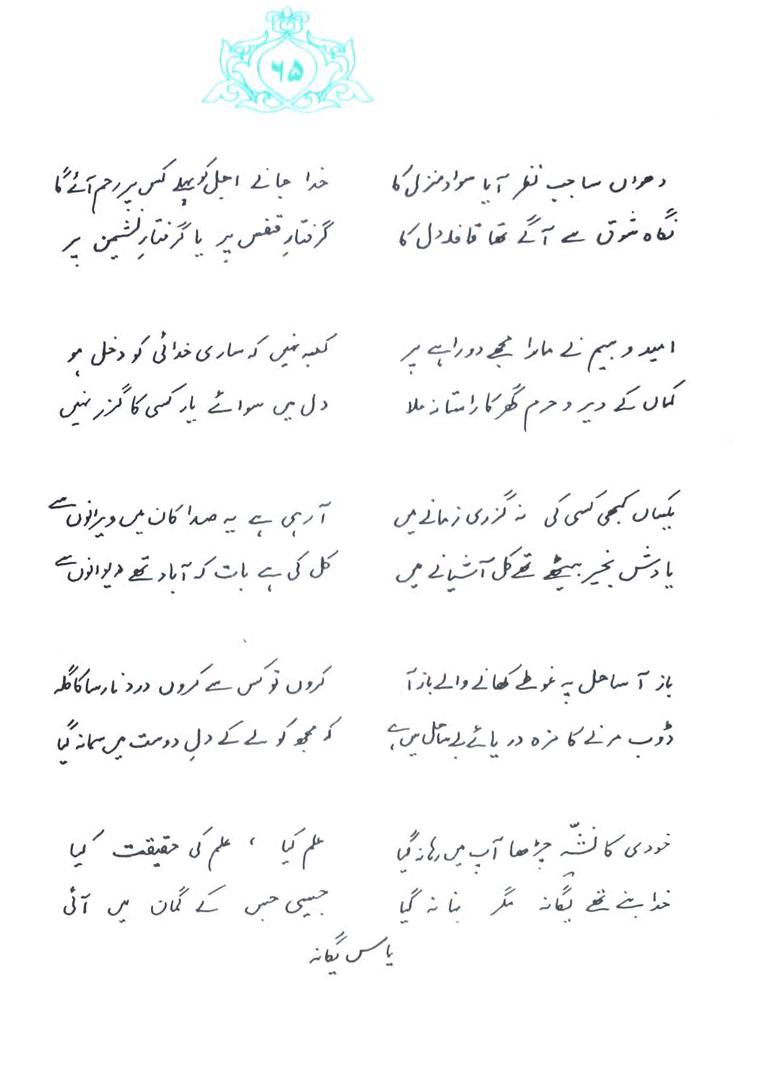 ۶۵
دھواں سا جب نظر آیا سوادِ منزل کا
نگاہ شوق سے آگے تھا قافلہ دل کا
خدا جانے اجل کو پہلے کس پر رحم آئے گا
گرفتارِ قفس پر یا گرفتارِ نشیمن پر
امید و بیم نے مارا مجھے دوراہے پر
کہاں کے دیر و حرم گھر کا راستا نہ ملا
کعبہ نہیں کہ ساری خدائی کو دخل ہو
دل میں سوائے یار کسی کا گزر نہیں
یکساں کبھی کسی کی نہ گزری زمانے میں
یادش بخیر بیٹھے تھے کل آشیانے میں
آ رہی ہے یہ صدا کان میں ویرانوں سے
کل کی ہے بات کہ آباد تھے دیوانوں سے
باز آ ساحل پہ غوطے کھانے والے باز آ
ڈوب مرنے کا مزہ دریائے بے ساحل میں ہے
کروں تو کس سے کروں درد نارسا کا گلہ
کہ مجھ کو لے کے دلِ دوست میں سما نہ گیا
خودی کا نشّہ چڑھا آپ میں رہا نہ گیا
خدا بنے تھے یگانہ مگر بنا نہ گیا
علم کیا ، علم کی حقیقت کیا
جیسی جس کے گمان میں آئی
یاس یگانہ